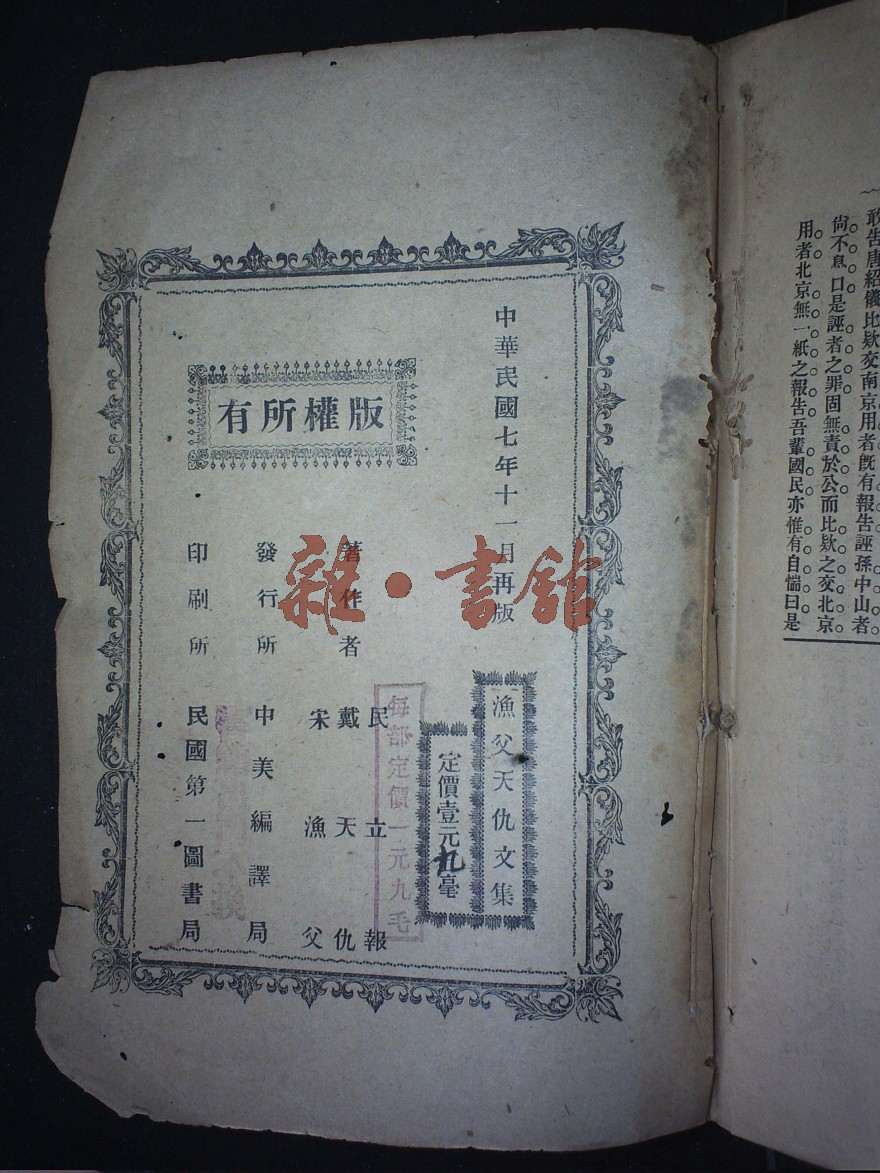 敢告唐紹儀比欵交南京用者旣有報告誣孫中山者
尙不息口是誣者之罪固無責於公而比欵之交北京
用者北京無一紙之報告吾輩國民亦惟有自惴曰是
中華民國七年十一月再版
漁父天仇文集
定價壹元九毫
每部定價一元九毛
版權所有
著作者
民立報
戴天仇
宋漁父
發行所 中美編譯局
印刷所 民國第一圖書局
雜·書館